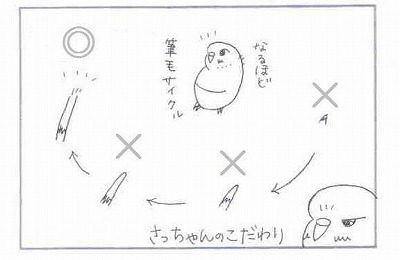 なるほど
筆毛サイクル
さっちゃんのこだわり